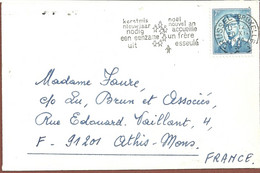 kerstmis
nieuwjaar
nodig
een eenzame
uit
noël
nouvel an
accueille
un frère
esseulé
Madame Fauré,
c/o Lu, Brun et Associés,
Rue Edouard Vaillant, 4,
F - 91201 Athis-Mons.
FRANCE.